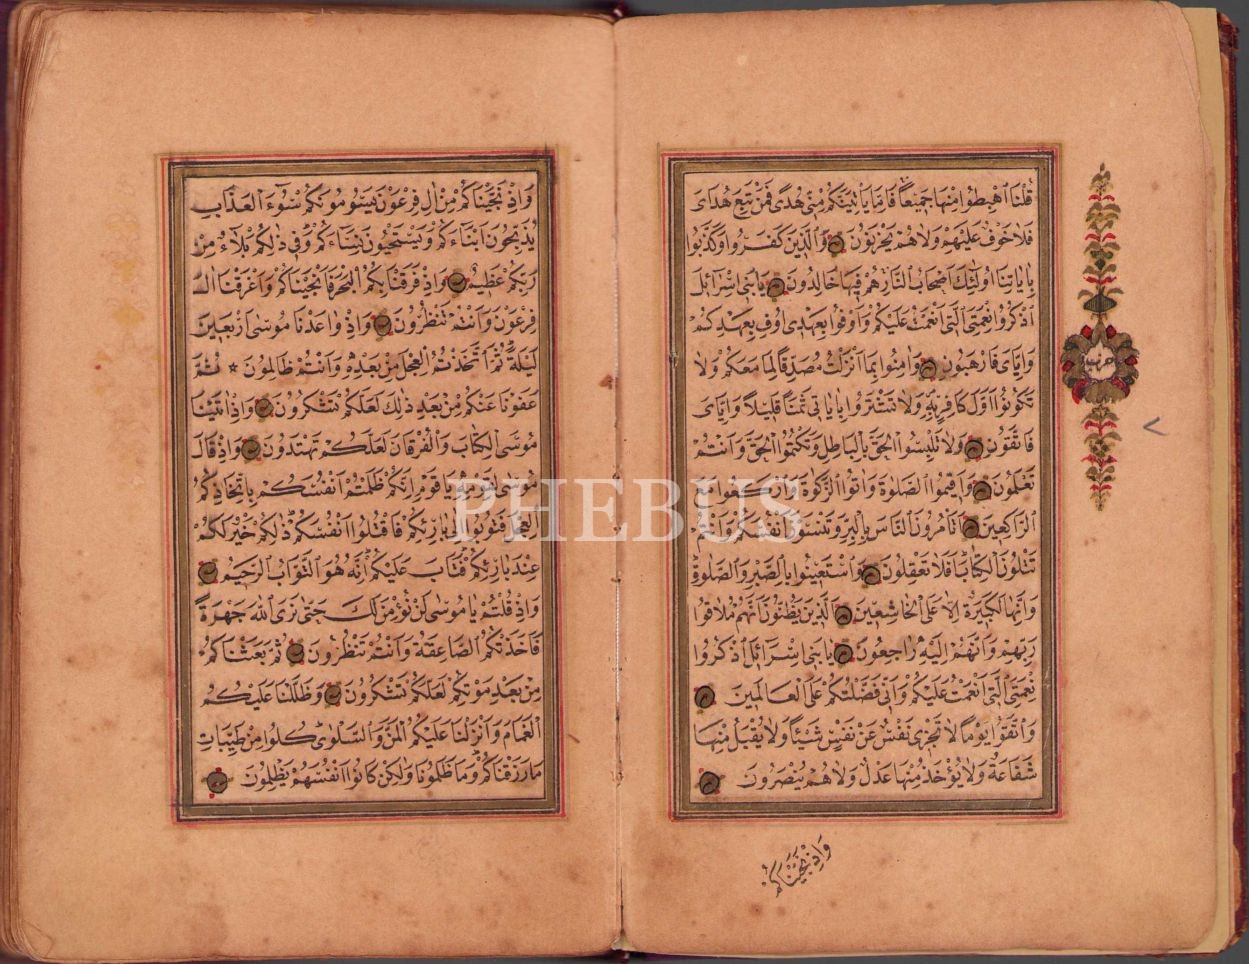 قُلْنَا اهْبِطُوا مِنْهَا جَمِيعًا فَاِمَّا يَاْتِيَنَّكُمْ مِنّٖى هُدًى فَمَنْ تَبِعَ هُدَاىَ
فَلَا خَوْفٌ عَلَيْهِمْ وَلَا هُمْ يَحْزَنُونَ وَالَّذٖينَ كَفَرُوا وَكَذَّبُوا
بِاٰيَاتِنَا اُولٰئِكَ اَصْحَابُ النَّارِ هُمْ فٖيهَا خَالِدُونَ يَا بَنٖى اِسْرَائٖلَ
اذْكُرُوا نِعْمَتِىَ الَّتٖى اَنْعَمْتُ عَلَيْكُمْ وَاَوْفُوا بِعَهْدٖى اُوفِ بِعَهْدِكُمْ
وَاِيَّاىَ فَارْهَبُونِ وَاٰمِنُوا بِمَا اَنْزَلْتُ مُصَدِّقًا لِمَا مَعَكُمْ وَلَا
تَكُونُوا اَوَّلَ كَافِرٍ بِهٖ وَلَا تَشْتَرُوا بِاٰيَاتٖى ثَمَنًا قَلٖيلًا وَاِيَّاىَ
فَاتَّقُونِ وَلَا تَلْبِسُوا الْحَقَّ بِالْبَاطِلِ وَتَكْتُمُوا الْحَقَّ وَاَنْتُمْ
تَعْلَمُونَ وَاَقٖيمُوا الصَّلٰوةَ وَاٰتُوا الزَّكٰوةَ وَارْكَعُوا مَعَ
الرَّاكِعٖينَ اَتَاْمُرُونَ النَّاسَ بِالْبِرِّ وَتَنْسَوْنَ اَنْفُسَكُمْ وَاَنْتُمْ
تَتْلُونَ الْكِتَابَ اَفَلَا تَعْقِلُونَ وَاسْتَعٖينُوا بِالصَّبْرِ وَالصَّلٰوةِ
وَاِنَّهَا لَكَبٖيرَةٌ اِلَّا عَلَى الْخَاشِعٖينَ اَلَّذٖينَ يَظُنُّونَ اَنَّهُمْ مُلَاقُوا
رَبِّهِمْ وَاَنَّهُمْ اِلَيْهِ رَاجِعُونَ يَا بَنٖى اِسْرَائٖلَ اذْكُرُوا
نِعْمَتِىَ الَّتٖى اَنْعَمْتُ عَلَيْكُمْ وَاَنّٖى فَضَّلْتُكُمْ عَلَى الْعَالَمٖينَ
وَاتَّقُوا يَوْمًا لَا تَجْزٖى نَفْسٌ عَنْ نَفْسٍ شَيْئًا وَلَا يُقْبَلُ مِنْهَا
شَفَاعَةٌ وَلَا يُؤْخَذُ مِنْهَا عَدْلٌ وَلَا هُمْ يُنْصَرُونَ
وَاِذْ نَجَّيْنَاكُمْ
وَاِذْ نَجَّيْنَاكُمْ مِنْ اٰلِ فِرْعَوْنَ يَسُومُونَكُمْ سُوءَ الْعَذَابِ
يُذَبِّحُونَ اَبْنَاءَكُمْ وَيَسْتَحْيُونَ نِسَاءَكُمْ وَفٖى ذٰلِكُمْ بَلَاءٌ مِنْ
رَبِّكُمْ عَظٖيمٌ وَاِذْ فَرَقْنَا بِكُمُ الْبَحْرَ فَاَنْجَيْنَاكُمْ وَاَغْرَقْنَا اٰلَ
فِرْعَوْنَ وَاَنْتُمْ تَنْظُرُونَ وَاِذْ وَاعَدْنَا مُوسٰى اَرْبَعٖينَ
لَيْلَةً ثُمَّ اتَّخَذْتُمُ الْعِجْلَ مِنْ بَعْدِهٖ وَاَنْتُمْ ظَالِمُونَ ٭ ثُمَّ
عَفَوْنَا عَنْكُمْ مِنْ بَعْدِ ذٰلِكَ لَعَلَّكُمْ تَشْكُرُونَ وَاِذْ اٰتَيْنَا
مُوسَى الْكِتَابَ وَالْفُرْقَانَ لَعَلَّكُمْ تَهْتَدُونَ وَاِذْ قَالَ
مُوسٰى لِقَوْمِهٖ يَا قَوْمِ اِنَّكُمْ ظَلَمْتُمْ اَنْفُسَكُمْ بِاتِّخَاذِكُمُ
الْعِجْلَ فَتُوبُوا اِلٰى بَارِئِكُمْ فَاقْتُلُوا اَنْفُسَكُمْ ذٰلِكُمْ خَيْرٌ لَكُمْ
عِنْدَ بَارِئِكُمْ فَتَابَ عَلَيْكُمْ اِنَّهُ هُوَ التَّوَّابُ الرَّحٖيمُ
وَاِذْ قُلْتُمْ يَا مُوسٰى لَنْ نُؤْمِنَ لَكَ حَتّٰى نَرَى اللّٰهَ جَهْرَةً
فَاَخَذَتْكُمُ الصَّاعِقَةُ وَاَنْتُمْ تَنْظُرُونَ ثُمَّ بَعَثْنَاكُمْ
مِنْ بَعْدِ مَوْتِكُمْ لَعَلَّكُمْ تَشْكُرُونَ وَظَلَّلْنَا عَلَيْكُمُ
الْغَمَامَ وَاَنْزَلْنَا عَلَيْكُمُ الْمَنَّ وَالسَّلْوٰى كُلُوا مِنْ طَيِّبَاتِ
مَا رَزَقْنَاكُمْ وَمَا ظَلَمُونَا وَلٰكِنْ كَانُوا اَنْفُسَهُمْ يَظْلِمُونَ
PHEBUS